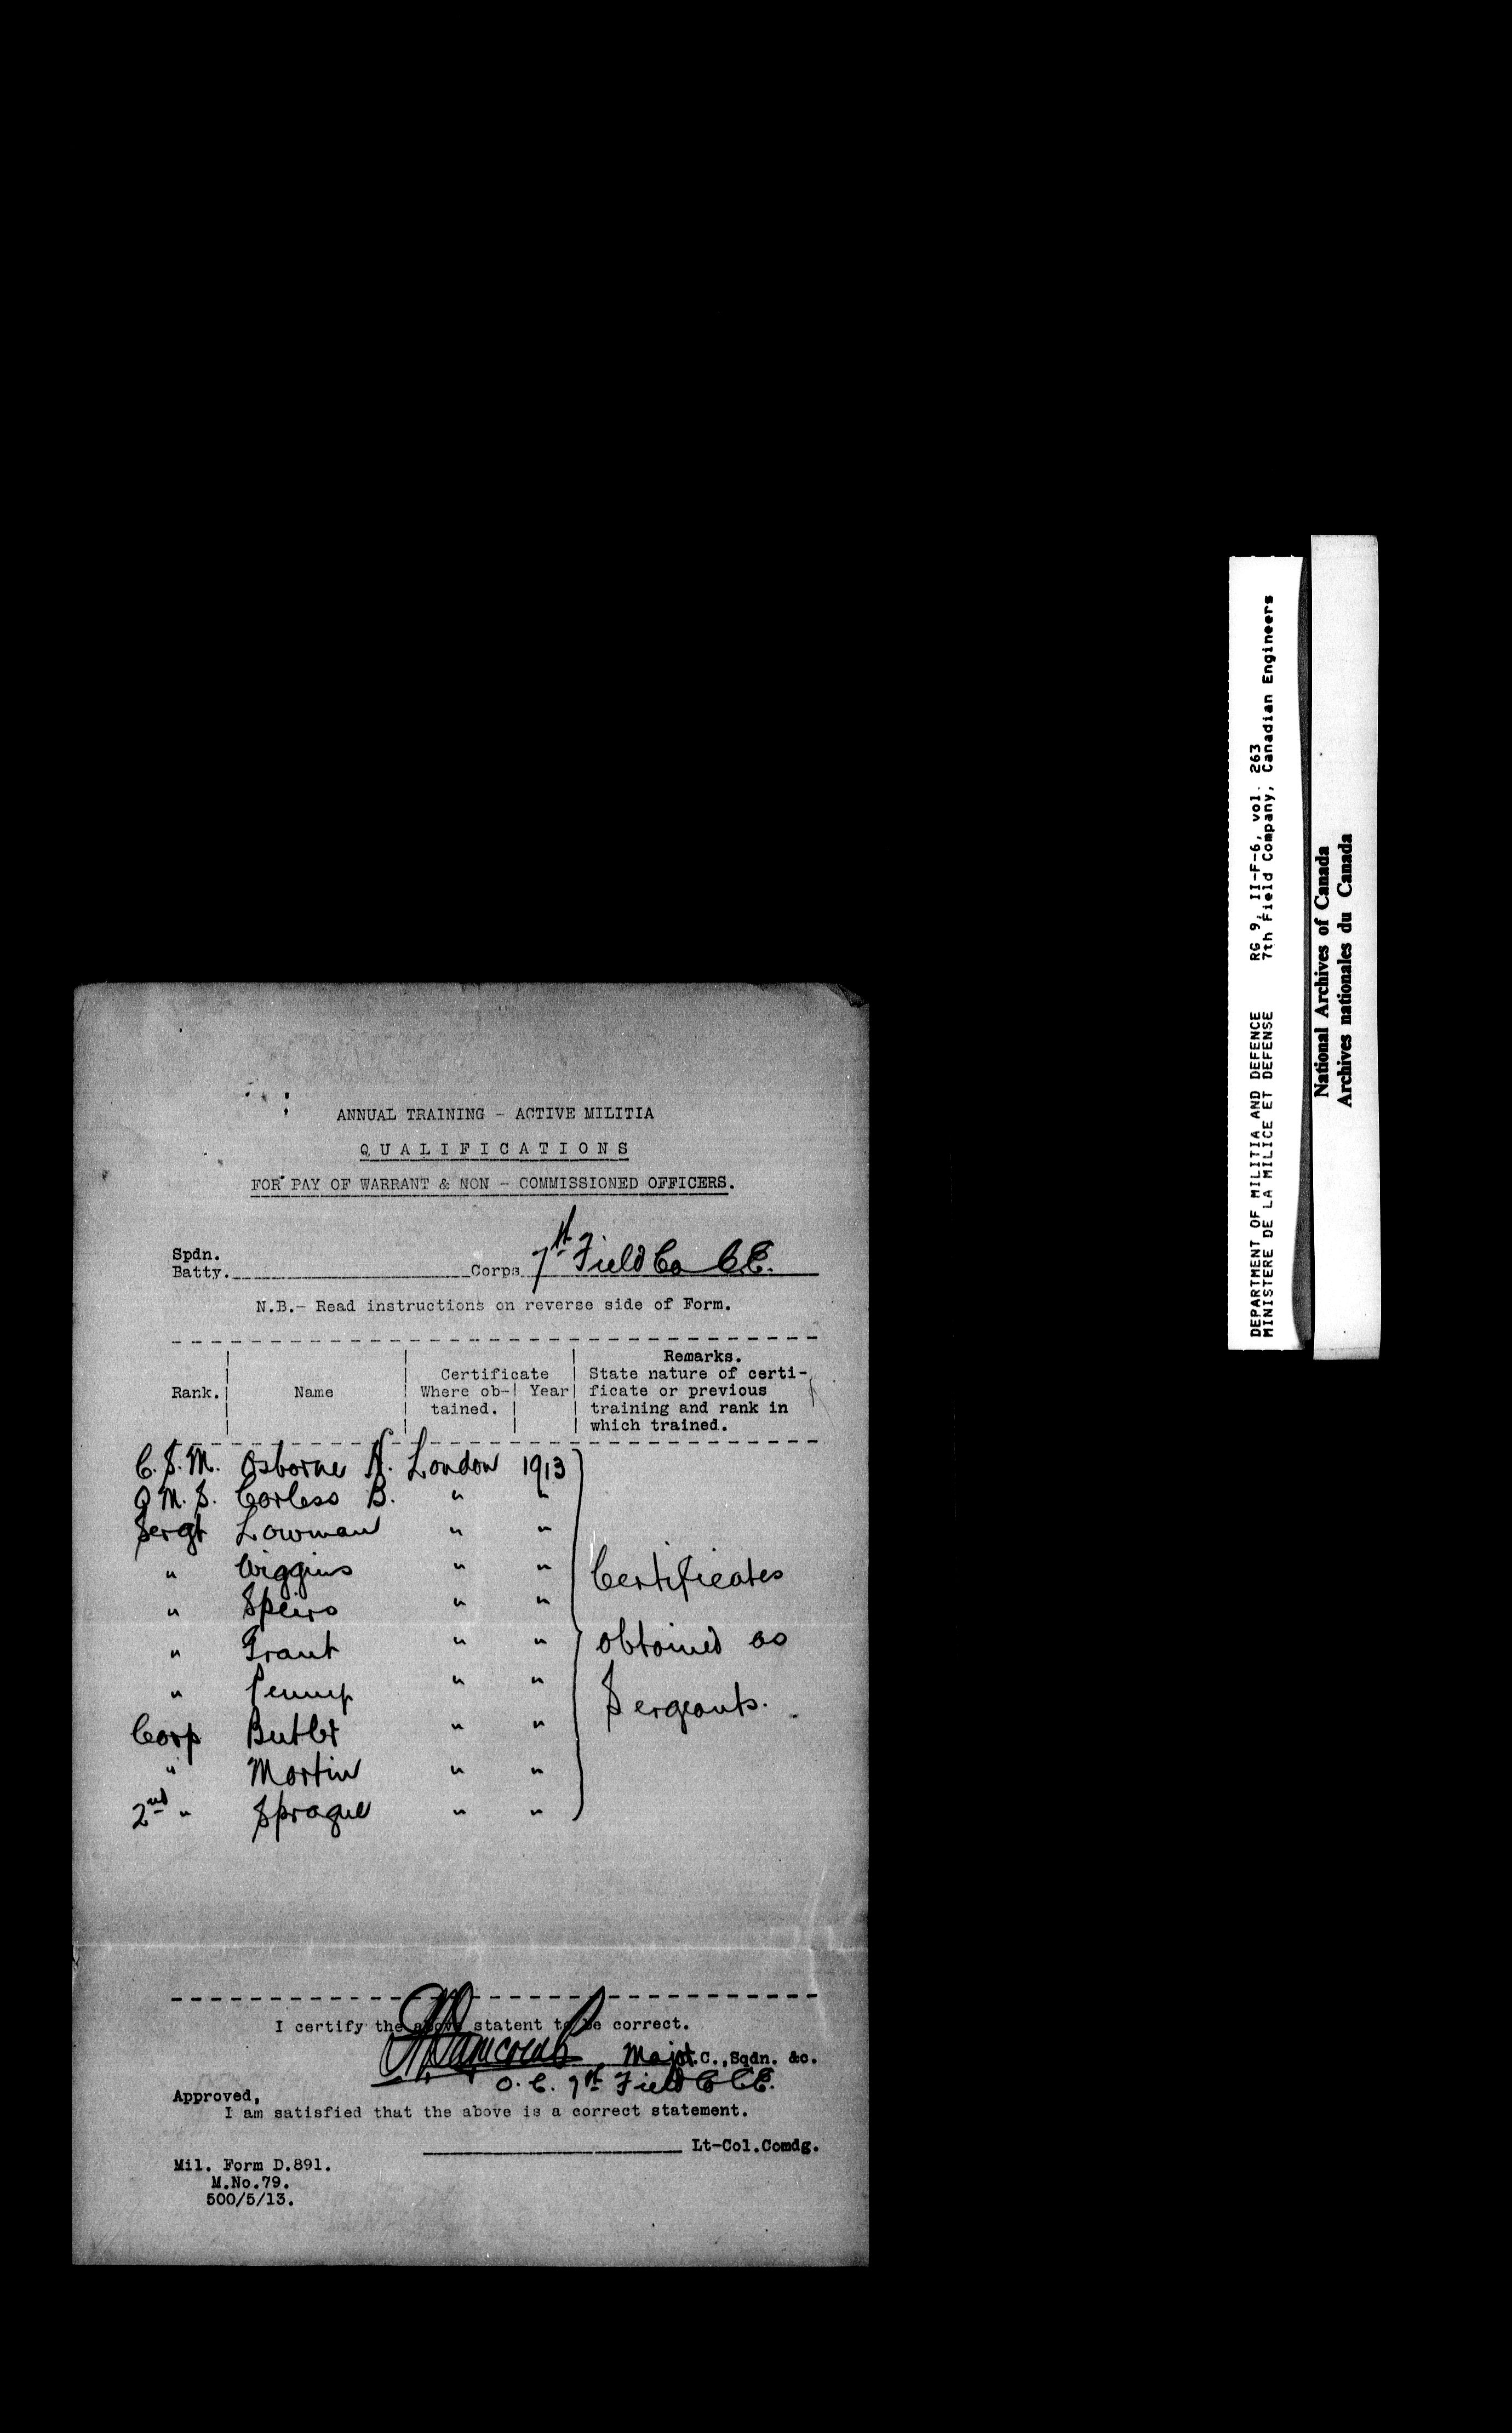 ANNUAL TRAINING - ACTIVE MILITIA
QUALIFICATIONS
FOR PAY OF WARRANT & NON - COMMISSIONED OFFICERS.
Spdn.
Batty. Corps 7th Field Co C.E.
N.B.- Read instructions on reverse side of Form.
Rank. Name Certificate Where ob- tained. Year Remarks. State nature of certi- ficate or previous training and rank in which trained.
C.S.M. Osborne H. London 1913
Q.M.S. Corless B. " "
Sergt Lowman " "
" Wiggins " "
" Speirs " "
" Grant " "
" " "
Corp Butler " "
" Martin " "
2nd " Sprague " "
Certificates
obtained as
Sergeants.
I certify the above statent to be correct.
Major .C.,Sqdn. &c.
O.C. 7th Field Co C.E.
Approved,
I am satisfied that the above is a correct statement.
Lt-Col.Comdg.
Mil. Form D.891.
M.No.79.
500/5/13.
DEPARTMENT OF MILITIA AND DEFENCE RG 9, II-F-6, vol. 263
MINISTERE DE LA MILICE ET DEFENSE 7th Field Company, Canadian Engineers
National Archives of Canada
Archives nationales du Canada